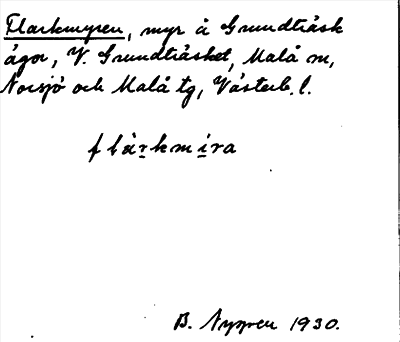 Flarkmyren, myr å Grundträsk
ägor, V. Grundträsket, Malå sn,
Norsjö och Malå tg, Västerb. l.
flàrkmíra
B. Nygren 1930.